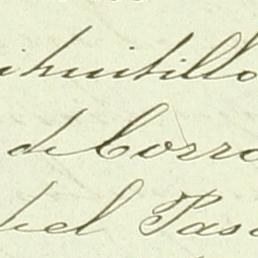 ihuitillo
de Corro
del Pas